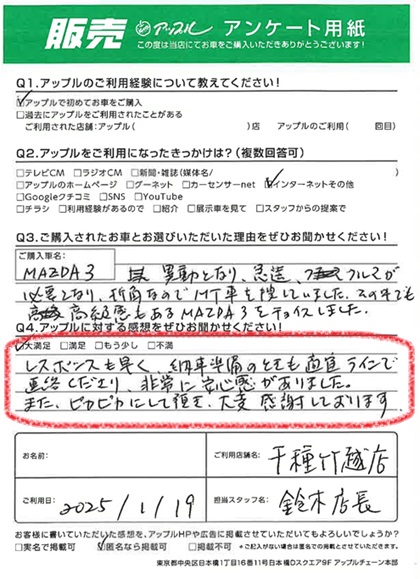 販売 アップル アンケート用紙
この度は当店にてお車をご購入いただきありがとうございます!
Q1.アップルのご利用経験について教えてください!
アップルで初めてお車をご購入
□過去にアップルをご利用されたことがある
ご利用された店舗:アップル( )店 アップルのご利用( 回目)
Q2.アップルをご利用になったきっかけは?(複数回答可)
□テレビCM □ラジオCM □新聞・雑誌(媒体名/ )
□アップルのホームページ □グーネット □カーセンサーnet インターネットその他
□Googleクチコミ □SNS □YouTube
□チラシ □利用経験があるので □紹介 □展示車を見て □スタッフからの提案で
Q3.ご購入されたお車とお選びいただいた理由をぜひお聞かせください!
ご購入車名:
MAZDA3 異動となり、急遽、クルマが
必要となり、折角なのでMT車を探していました。その中でも
高級感もあるMAZDA3をチョイスしました。
Q4.アップルに対する感想をぜひお聞かせください!
大満足 □満足 □もう少し □不満
レスポンスも早く、納車準備のときも適宜ラインで
連絡くださり、非常に安心感がありました。
また、ピカピカにして頂き、大変感謝しております
お名前:
ご利用店舗名: 千種竹越店
ご利用日: 2025/1/19
担当スタッフ名: 鈴木店長
お客様に書いていただいた感想を、アップルHPや広告に掲載させていただいてもよろしいでしょうか?
□実名で掲載可 匿名なら掲載可 □掲載不可 *ご記入がない場合は匿名での掲載とさせていただきます。
東京都中央区日本橋1丁目16番11号日本橋Dスクエア9F アップルチェーン本部